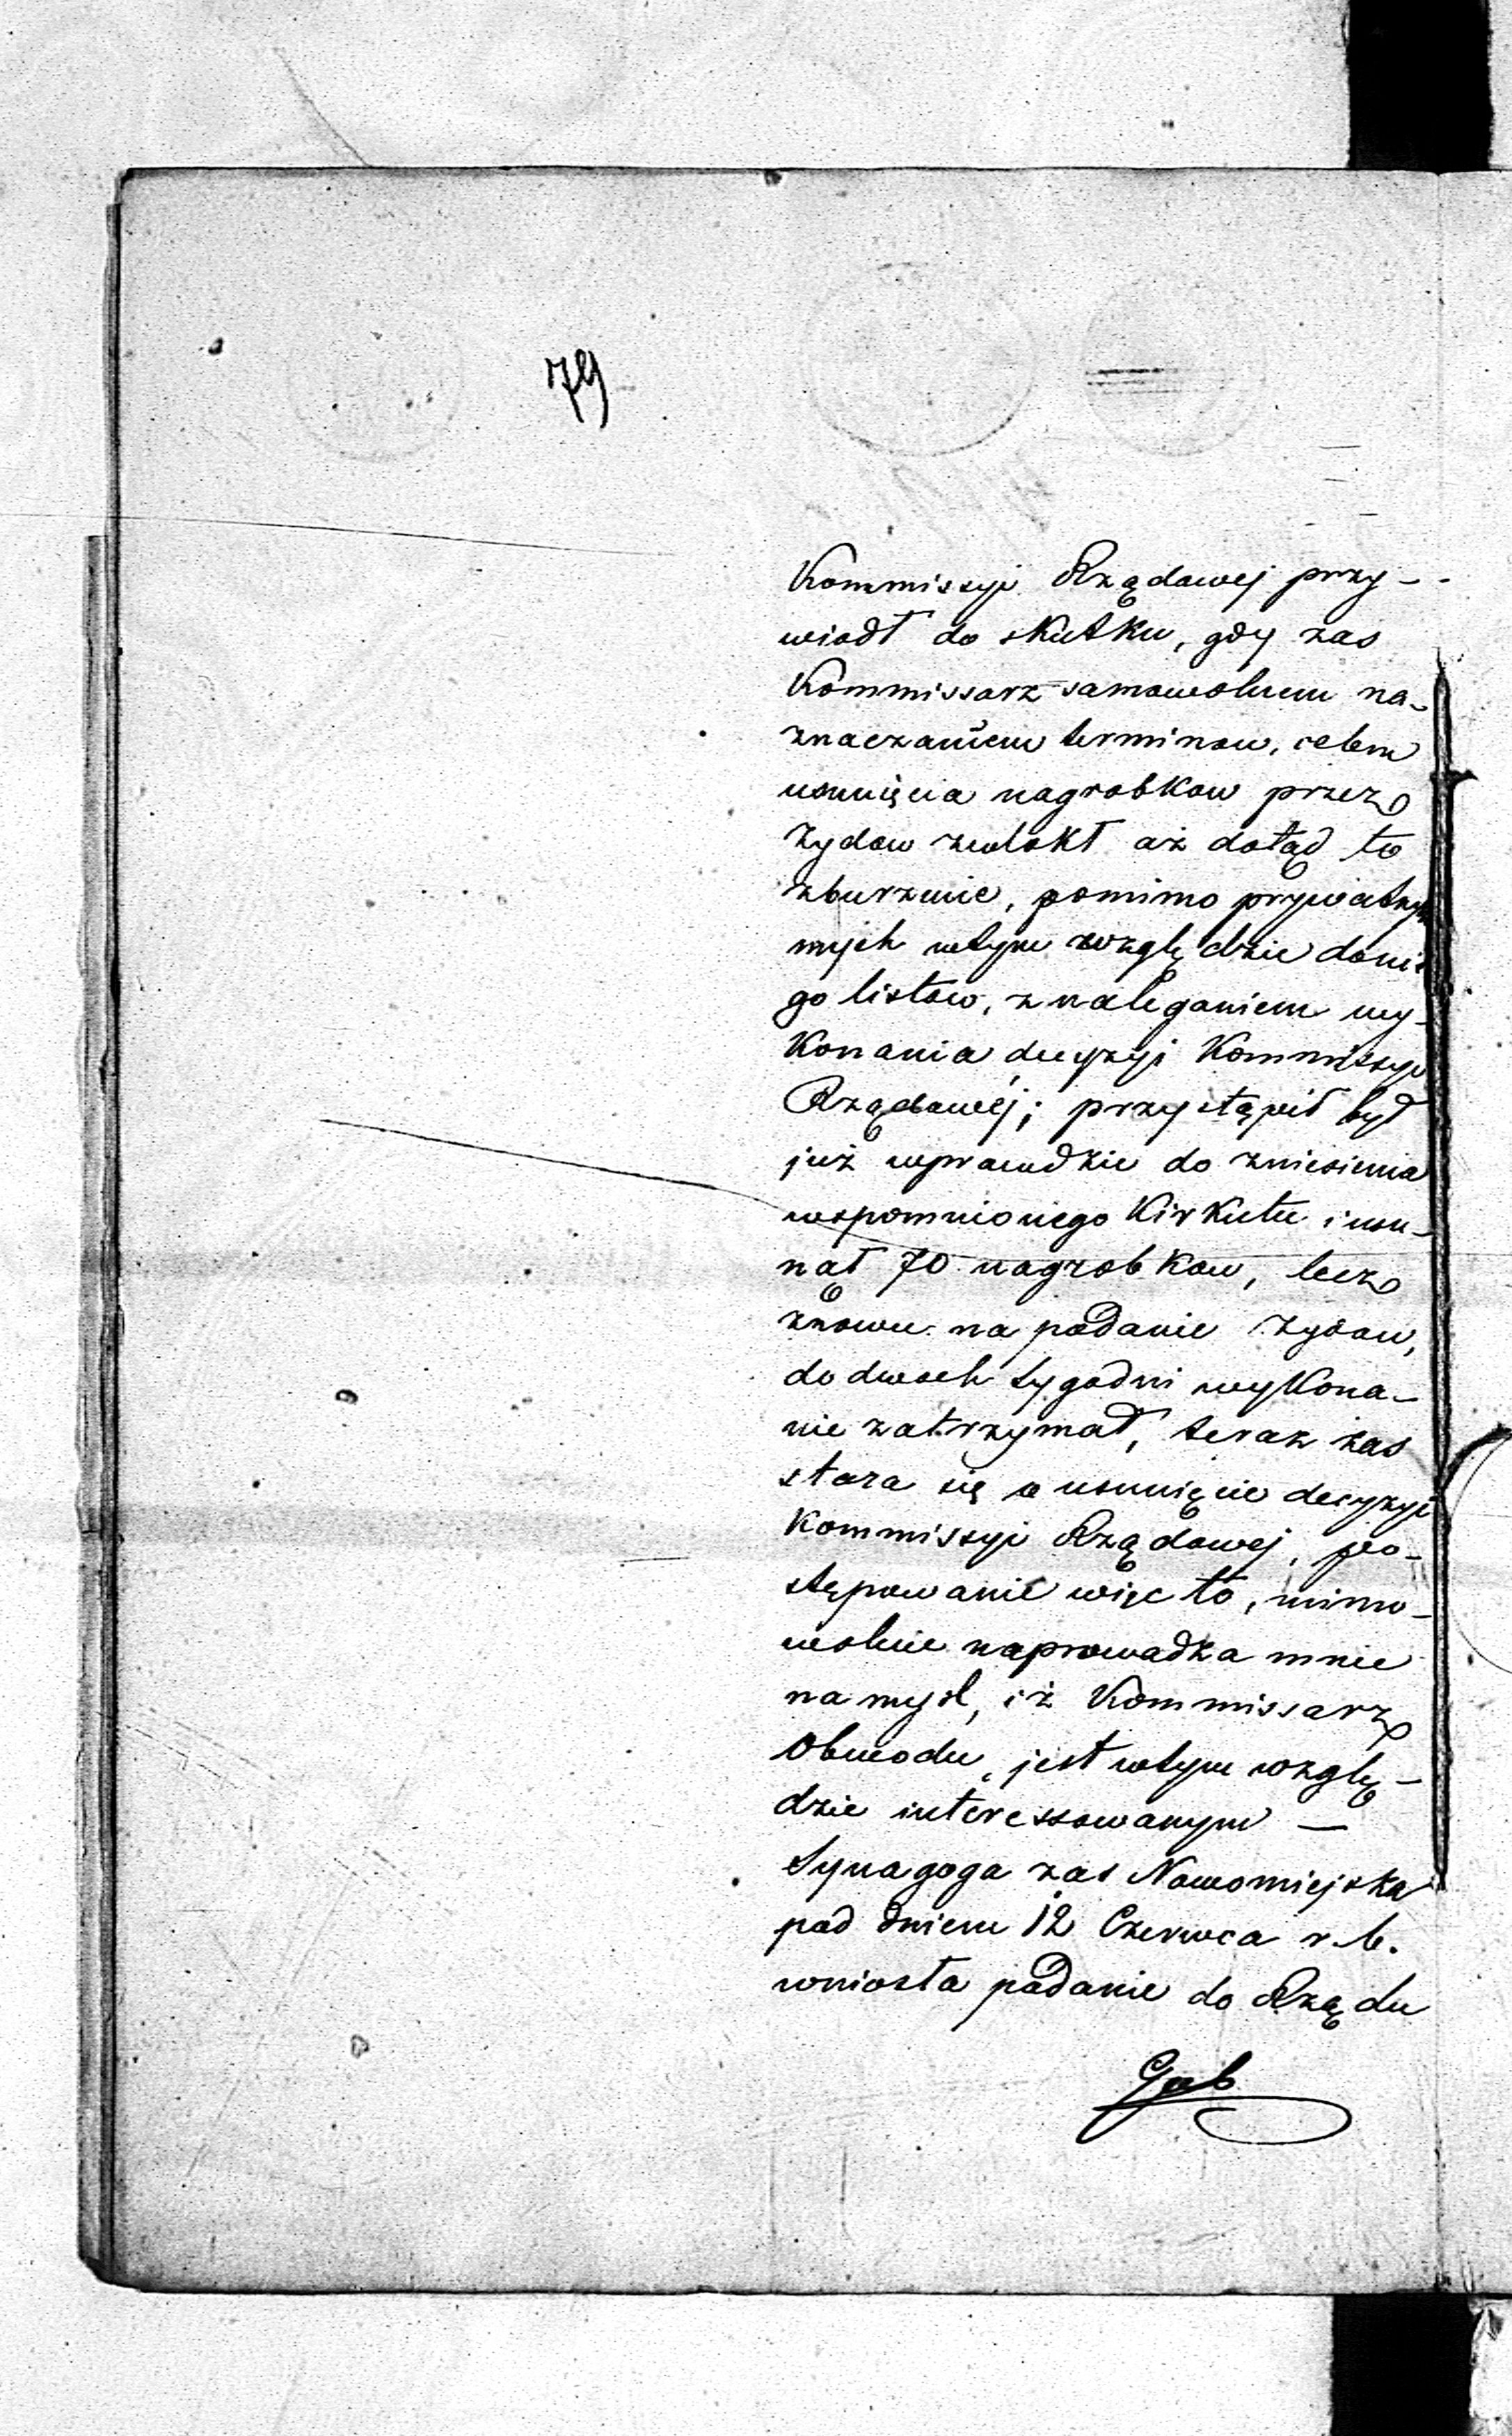 79
Kommissyi Rządowej przy-
wiodł do skutku, gdy zas
Kommissarz samowolnem na-
znaczaniem terminow, celem
usunięcia nagrobkow przez
Zydow zwlokł aż dotąd to
zburzenie, pomimo prywatny
mych wtym względzie doni
go listow, z naleganiem wy-
konania decyzyi Kommissyi
Rządowéj; przystąpił był
już wprawdzie do zniesienia
wspomnionego Kirkutu i usu-
nął 70 nagrobkow, lecz
znowu na podanie Zydow,
do dwoch tygodni wykona-
nie zatrzymał, teraz zas
stara się o usunięcie decyzyi
Kommissyi Rządowej, po-
stępowanie więc to, mimo-
wolnie naprowadza mnie
na mysl, iż Kommissarz
Obwodu, jest wtym wzglę-
dzie interessowanym —
Synagoga zas Nowomiejska
pod dniem 12 Czerwca r. b.
wniosła podanie do Rządu
Gub